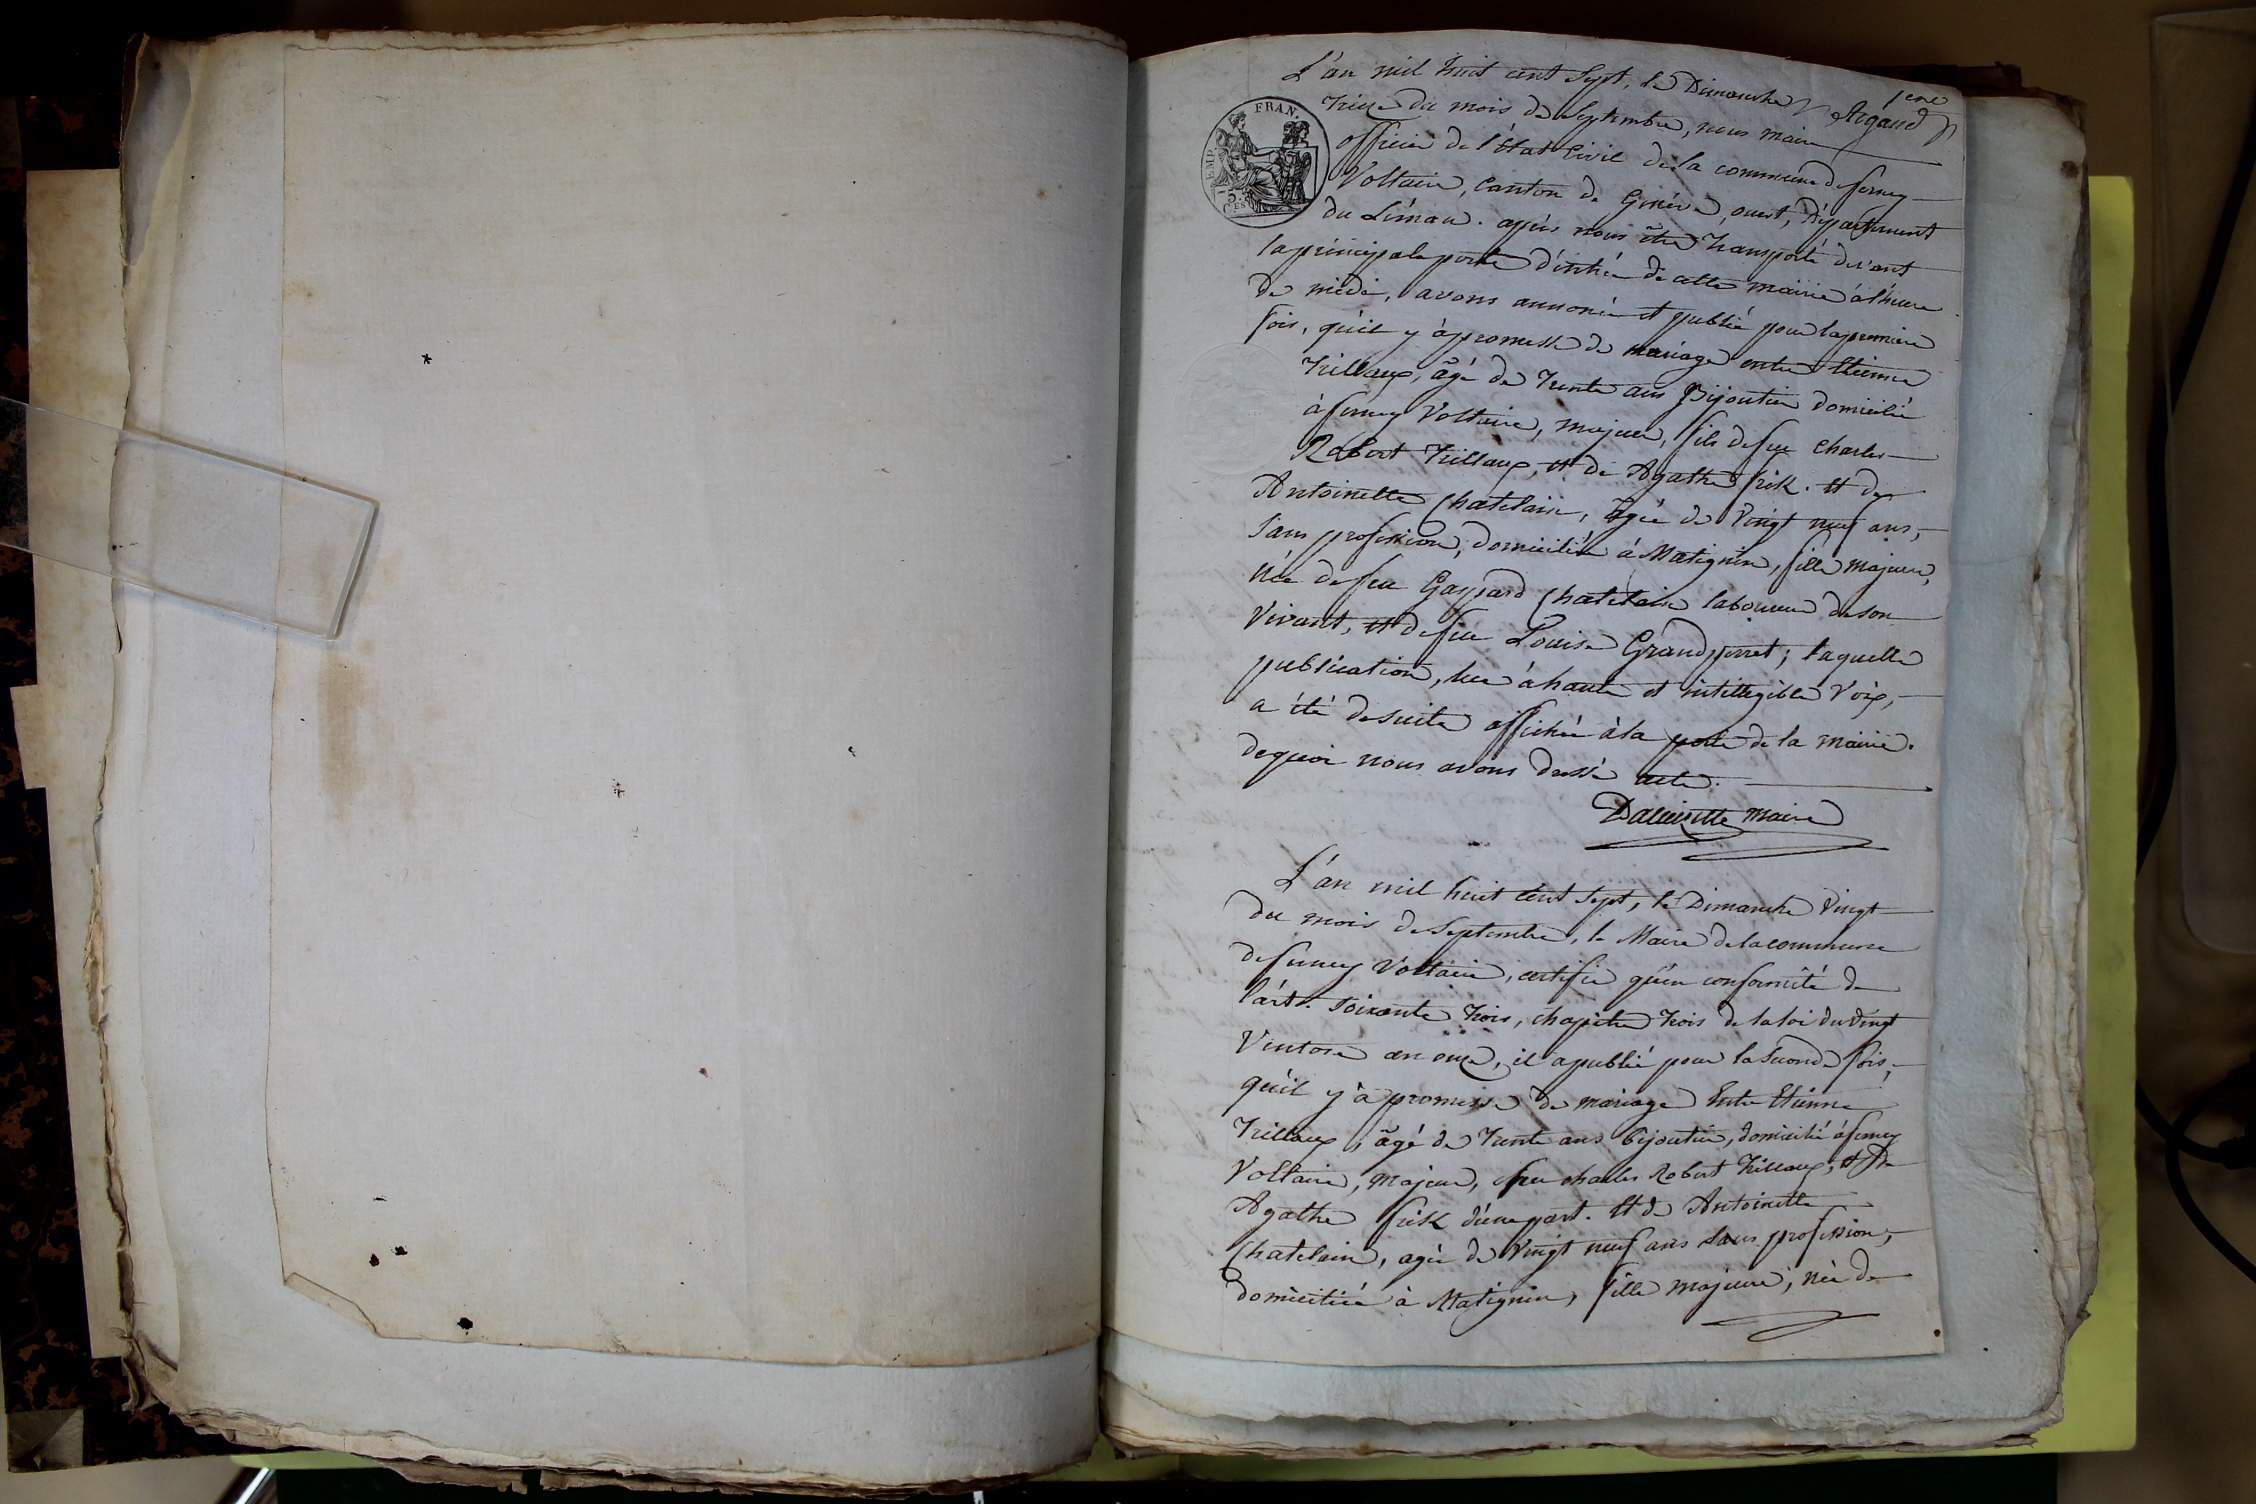 1ere
Rigaud
FRAN.
EMP.
L'an mil huit cent Sept, le Dimanche
treize du mois de Septembre, nous maire
officier de l'état Civil de la commune de ferney
Voltaire, Canton de Genève, ouest, Département
du Léman. après nous être transporté devant
la principale porte d'entrée de cette mairie à l'heure
de midi, avons annoncé et publié pour la premiere
fois, qu'il y à promesse de mariage entre Etienne
Trillaux, âgé de trente ans Bijoutier domicilié
à ferney Voltaire, majeur, fils de feu Charles
Robert Trillaux, et de Agathe frik. et de
Antoinette Chatelain, âgée de Vingt neuf ans,
sans profession, domiciliée à Matignin, fille majeure,
née de feu Gaspard Chatelain laboureur de son
Vivant, et de feue Louise Grandperret; laquelle
publication, lue à haute et intillegible voix,
a été de suite affichée à la porte de la mairie.
de quoi nous avons dressé acte.
maire
L'an mil huit cent Sept, le Dimanche Vingt
du mois de Septembre, le Maire de la commune
de ferney Voltaire, certifie qu'en conformité de
l'art. soixante trois, chapitre trois de la loi du Vingt
Ventose an onze, il a publié pour la seconde fois,
qu'il y à promesse de mariage Entre Etienne
Trillaux, âgé de trente ans bijoutier, domicilié à ferney
Voltaire, majeur, feu charles Robert Trillaux, et de
Agathe frik d'une part. Et de Antoinette
Chatelain, agée de Vingt neuf ans sans profession,
domiciliée à Matignin, fille majeure, née de